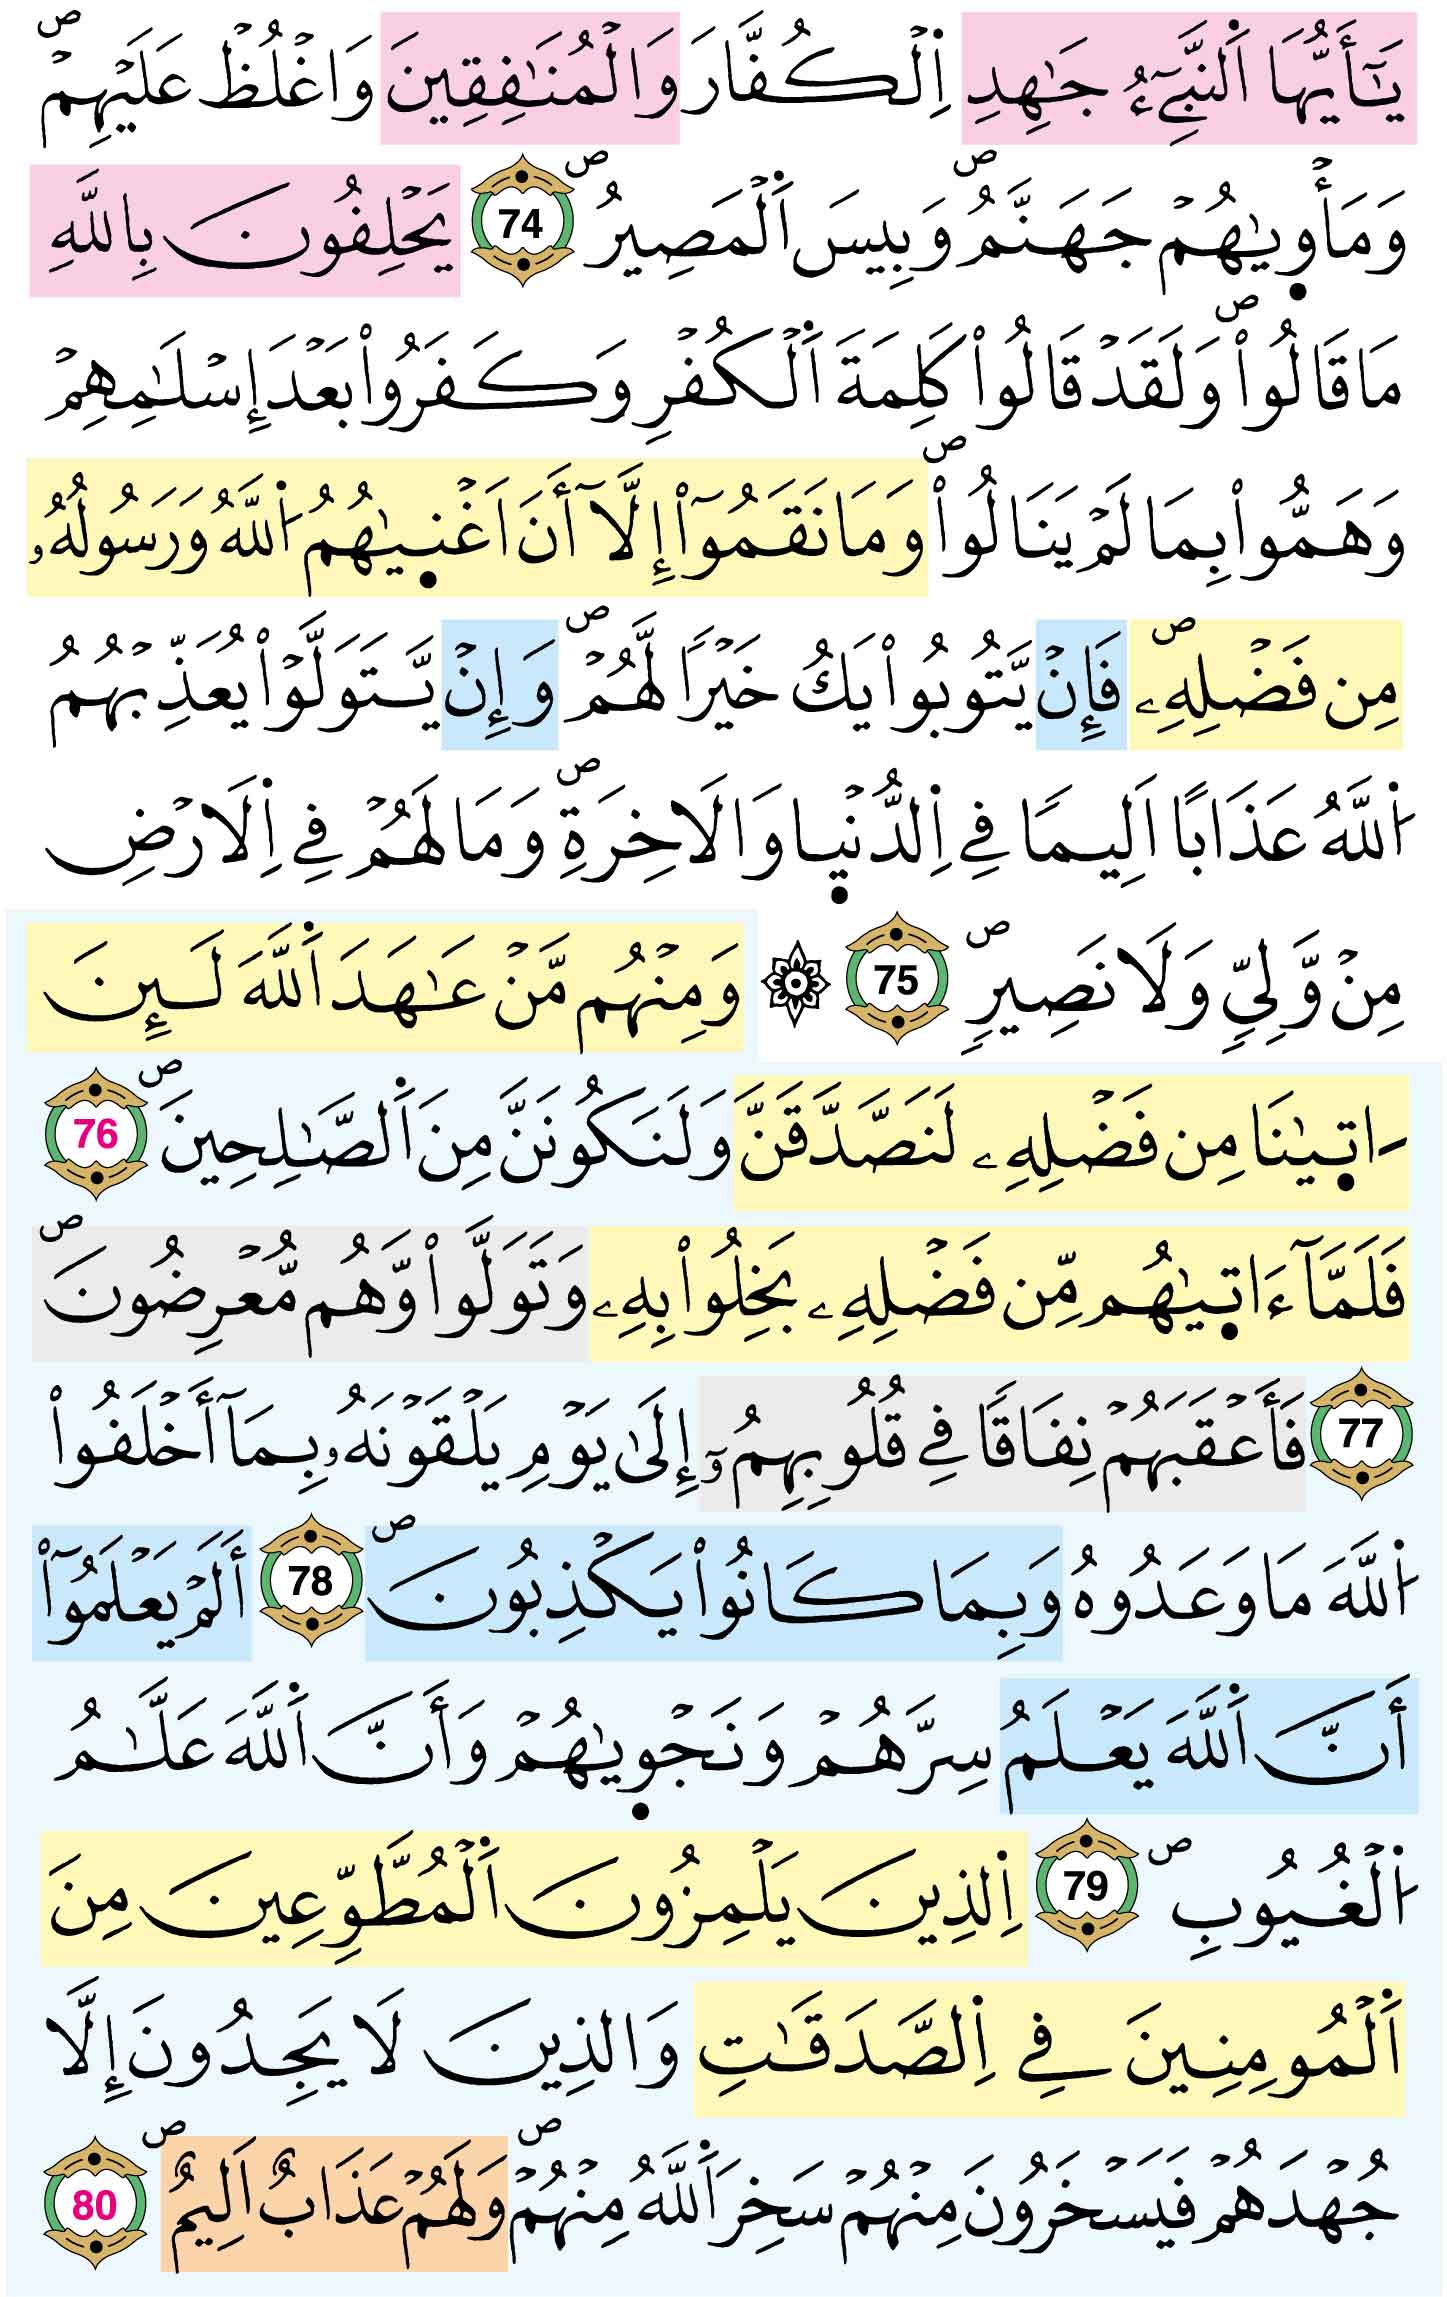 يَٰٓأَيُّهَا اَ۬لنَّبِےٓءُ جَٰهِدِ اِ۬لْكُفَّارَ وَالْمُنَٰفِقِينَ وَاغْلُظْ عَلَيْهِمْۖ
وَمَأْو۪يٰهُمْ جَهَنَّمُۖ وَبِيسَ اَ۬لْمَصِيرُۖ 74 يَحْلِفُونَ بِاللَّهِ
مَا قَالُواْۖ وَلَقَدْ قَالُواْ كَلِمَةَ اَ۬لْكُفْرِ وَكَفَرُواْ بَعْدَ إِسْلَٰمِهِمْ
وَهَمُّواْ بِمَا لَمْ يَنَالُواْۖ وَمَا نَقَمُوٓاْ إِلَّآ أَنَ اَغْن۪يٰهُمُ اُ۬للَّهُ وَرَسُولُهُۥ
مِن فَضْلِهِۦۖ فَإِنْ يَّتُوبُواْ يَكُ خَيْرًا لَّهُمْۖ وَإِنْ يَّتَوَلَّوْاْ يُعَذِّبْهُمُ
اُ۬للَّهُ عَذَابًا اَلِيمًا فِے اِ۬لدُّنْي۪ا وَالَاخِرَةِۖ وَمَا لَهُمْ فِے اِ۬لَارْضِ
مِنْ وَّلِيّٖ وَلَا نَصِيرٖۖ 75 ۞ وَمِنْهُم مَّنْ عَٰهَدَ اَ۬للَّهَ لَئِنَ
اٰت۪يٰنَا مِن فَضْلِهِۦ لَنَصَّدَّقَنَّ وَلَنَكُونَنَّ مِنَ اَ۬لصَّٰلِحِينَۖ 76
فَلَمَّآ ءَات۪يٰهُم مِّن فَضْلِهِۦ بَخِلُواْ بِهِۦ وَتَوَلَّواْ وَّهُم مُّعْرِضُونَۖ
77 فَأَعْقَبَهُمْ نِفَاقًا فِے قُلُوبِهِمُۥٓ إِلَىٰ يَوْمِ يَلْقَوْنَهُۥ بِمَآ أَخْلَفُواْ
اُ۬للَّهَ مَا وَعَدُوهُ وَبِمَا كَانُواْ يَكْذِبُونَۖ 78 أَلَمْ يَعْلَمُوٓاْ
أَنَّ اَ۬للَّهَ يَعْلَمُ سِرَّهُمْ وَنَجْو۪يٰهُمْ وَأَنَّ اَ۬للَّهَ عَلَّٰمُ
اُ۬لْغُيُوبِۖ 79 اِ۬لذِينَ يَلْمِزُونَ اَ۬لْمُطَّوِّعِينَ مِنَ
اَ۬لْمُومِنِينَ فِے اِ۬لصَّدَقَٰتِ وَالذِينَ لَا يَجِدُونَ إِلَّا
جُهْدَهُمْ فَيَسْخَرُونَ مِنْهُمْ سَخِرَ اَ۬للَّهُ مِنْهُمْۖ وَلَهُمْ عَذَابٌ اَلِيمٌۖ 80